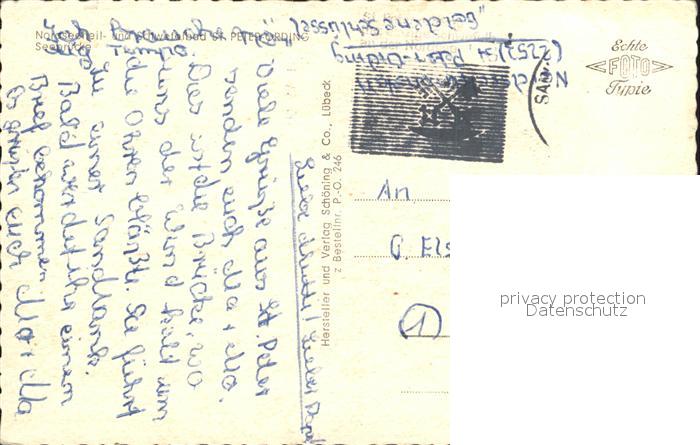 Nordseeheil- und Schwefelbad ST. PETER ORDING
Seebrücke
"Goldene Schlüssel"
(2252) St. Peter-Ording
Echte
FOTO
Typie
Hersteller und Verlag Schöning & Co., Lübeck
z Bestellnr. P.-O. 246
Liebe Mutti! Lieber
Viele Grüße aus St. Peter
senden euch Ma + Ma.
Das ist die Brücke, wo
uns der Wind kalt um
die Ohren bläßt. Sie führt
zu einer Sandbank.
Bald werdet ihr einen
Brief bekommen.
Es grüßen euch Ma + Ma
An
1
privacy protection
Datenschutz